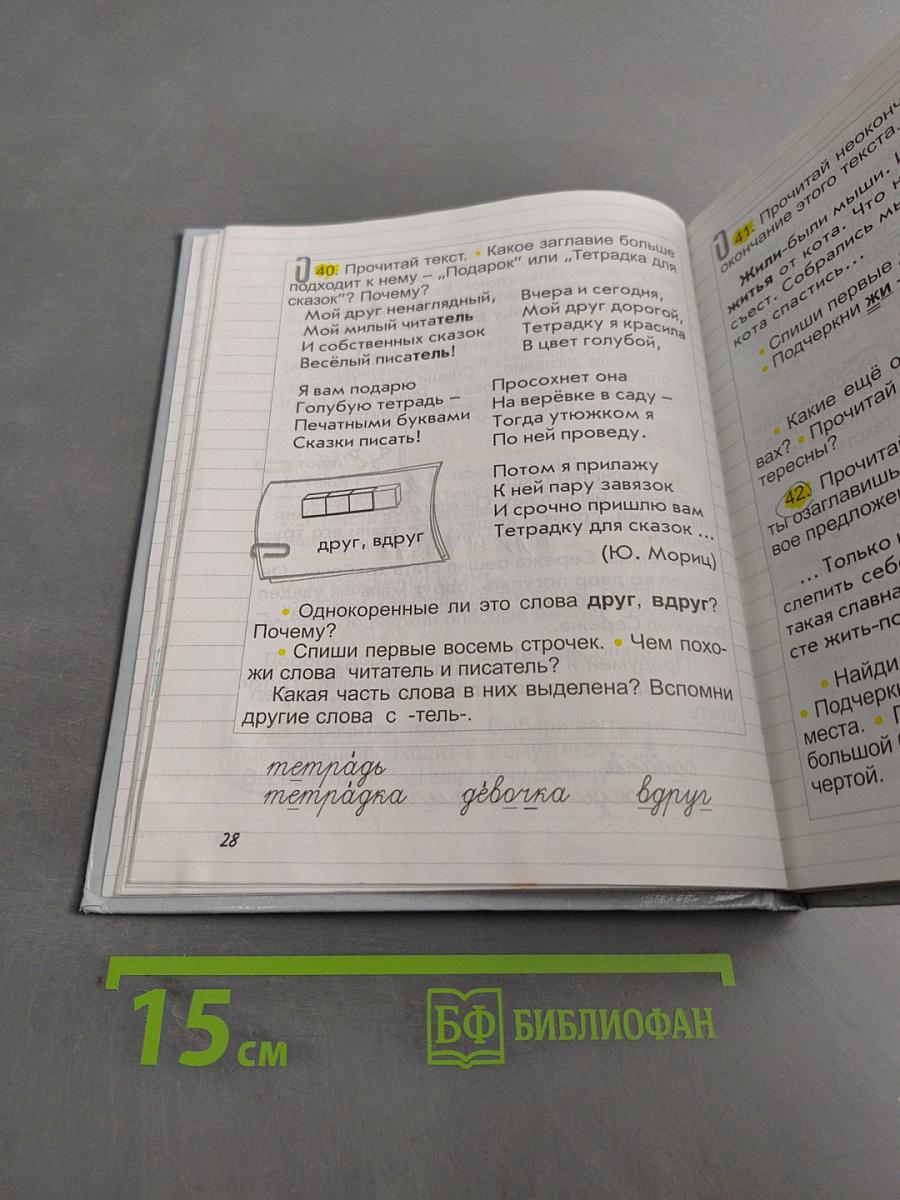 40. Прочитай текст. • Какое заглавие больше
подходит к нему – „Подарок" или „Тетрадка для
сказок"? Почему?
Мой друг ненаглядный,
Мой милый читатель
И собственных сказок
Весёлый писатель!
Я вам подарю
Голубую тетрадь –
Печатными буквами
Сказки писать!
Вчера и сегодня,
Мой друг дорогой,
Тетрадку я красила
В цвет голубой,
Просохнет она
На верёвке в саду –
Тогда утюжком я
По ней проведу.
Потом я прилажу
К ней пару завязок
И срочно пришлю вам
Тетрадку для сказок ...
(Ю. Мориц)
друг, вдруг
• Однокоренные ли это слова друг, вдруг?
Почему?
• Спиши первые восемь строчек. • Чем похо-
жи слова читатель и писатель?
Какая часть слова в них выделена? Вспомни
другие слова с -тель-.
тетра́дь
тетра́дка де́вочка вдруг
28
41. Прочитай
окончание этого текста.
Жили-были мыши.
житья от кота. Что
съест. Собрались
кота спастись...
• Спиши первые
• Подчеркни жи –
• Какие ещё
вах? • Прочитай
тересны?
42. Прочитай
ты озаглавишь
вое предложен
... Только
слепить себе
такая славна
сте жить-по
• Найди
• Подчеркн
места. •
большой
чертой.
15 см
БФ БИБЛИОФАН